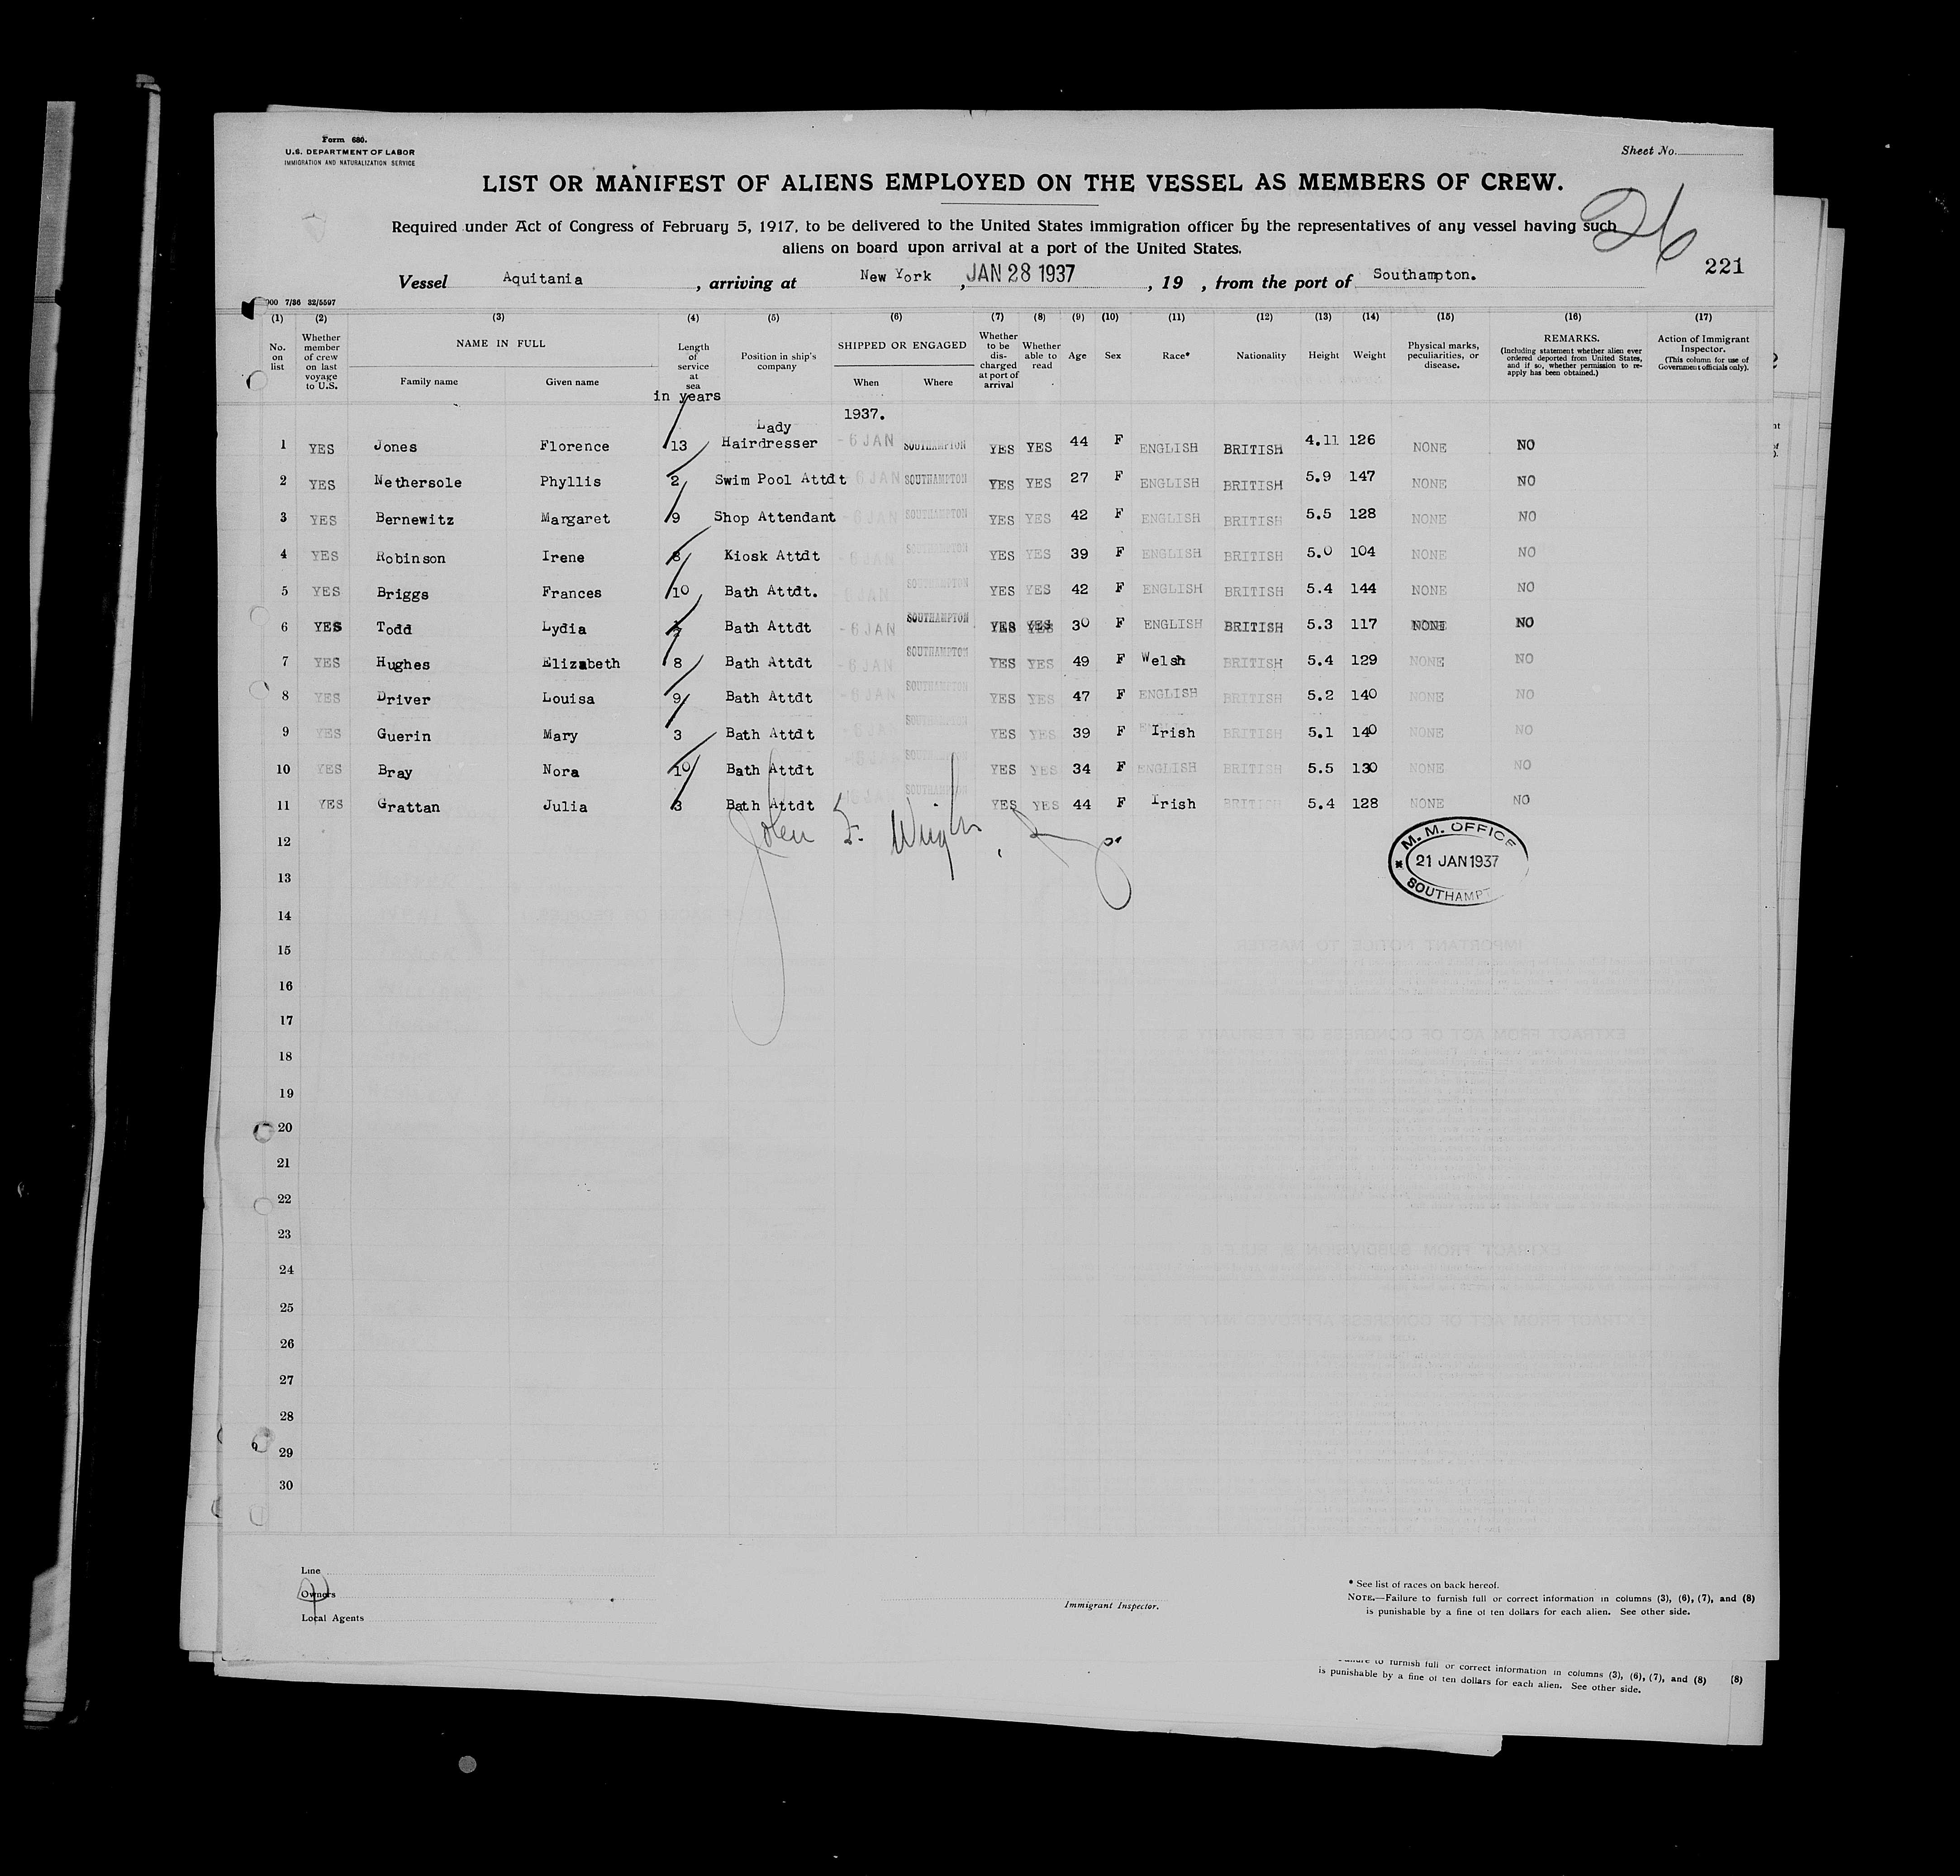 Form 680.
U.S. DEPARTMENT OF LABOR
IMMIGRATION AND NATURALIZATION SERVICE
Sheet No.
LIST OR MANIFEST OF ALIENS EMPLOYED ON THE VESSEL AS MEMBERS OF CREW.
26
Required under Act of Congress of February 5, 1917, to be delivered to the United States immigration officer by the representatives of any vessel having such
aliens on board upon arrival at a port of the United States.
221
Vessel Aquitania, arriving at New York, JAN 28 1937, 19 , from the port of Southampton.
000 7/36 32/5597
(1) (2) (3) (4) (5) (6) (7) (8) (9) (10) (11) (12) (13) (14) (15) (16) (17)
No. on list
Whether member of crew on last voyage to U.S.
NAME IN FULL
Family name Given name
Length of service at sea
in years
Position in ship's company
SHIPPED OR ENGAGED
When Where
Whether to be discharged at port of arrival
Whether able to read
Age
Sex
Race*
Nationality
Height
Weight
Physical marks, peculiarities, or disease.
REMARKS.
(Including statement whether alien ever ordered deported from United States, and if so, whether permission to re-apply has been obtained.)
Action of Immigrant Inspector.
(This column for use of Government officials only).
1937.
1 YES Jones Florence 13 Lady Hairdresser - 6 JAN SOUTHAMPTON YES YES 44 F ENGLISH BRITISH 4.11 126 NONE NO
2 YES Nethersole Phyllis 2 Swim Pool Attdt 6 JAN SOUTHAMPTON YES YES 27 F ENGLISH BRITISH 5.9 147 NONE NO
3 YES Bernewitz Margaret 9 Shop Attendant - 6 JAN SOUTHAMPTON YES YES 42 F ENGLISH BRITISH 5.5 128 NONE NO
4 YES Robinson Irene 8 Kiosk Attdt - 6 JAN SOUTHAMPTON YES YES 39 F ENGLISH BRITISH 5.0 104 NONE NO
5 YES Briggs Frances 10 Bath Attdt. 6 JAN SOUTHAMPTON YES YES 42 F ENGLISH BRITISH 5.4 144 NONE NO
6 YES Todd Lydia Bath Attdt - 6 JAN SOUTHAMPTON YES YES 30 F ENGLISH BRITISH 5.3 117 NONE NO
7 YES Hughes Elizabeth 8 Bath Attdt - 6 JAN SOUTHAMPTON YES YES 49 F Welsh BRITISH 5.4 129 NONE NO
8 YES Driver Louisa 9 Bath Attdt - 6 JAN SOUTHAMPTON YES YES 47 F ENGLISH BRITISH 5.2 140 NONE NO
9 YES Guerin Mary 3 Bath Attdt - 6 JAN SOUTHAMPTON YES YES 39 F Irish BRITISH 5.1 140 NONE NO
10 YES Bray Nora 10 Bath Attdt - 6 JAN SOUTHAMPTON YES YES 34 F ENGLISH BRITISH 5.5 130 NONE NO
11 YES Grattan Julia 3 Bath Attdt 6 JAN SOUTHAMPTON YES YES 44 F Irish BRITISH 5.4 128 NONE NO
John F. Wright
M. M. OFFICE
* 21 JAN 1937
SOUTHAMPT
12
13
14
15
16
17
18
19
20
21
22
23
24
25
26
27
28
29
30
Line
Owners
Local Agents
Immigrant Inspector.
* See list of races on back hereof.
NOTE.—Failure to furnish full or correct information in columns (3), (6), (7), and (8)
is punishable by a fine of ten dollars for each alien. See other side.
to furnish full or correct information in columns (3), (6), (7), and (8) (8)
is punishable by a fine of ten dollars for each alien. See other side.